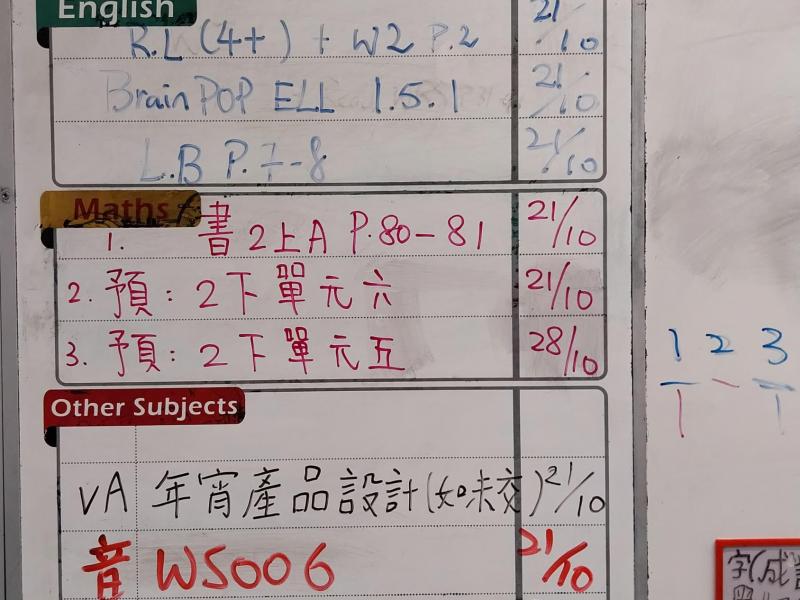 English
R.L (4+) + W2 P.2 21/10
BrainPOP ELL 1.5.1 21/10
L.B P.7-8 21/10
Maths
1. 書2上A P.80-81 21/10
2. 預: 2下單元六 21/10
3. 預: 2下單元五 28/10
Other Subjects
VA 年宵產品設計(如未交) 21/10
音 WS006 21/10
1 2 3
1 1
字(成